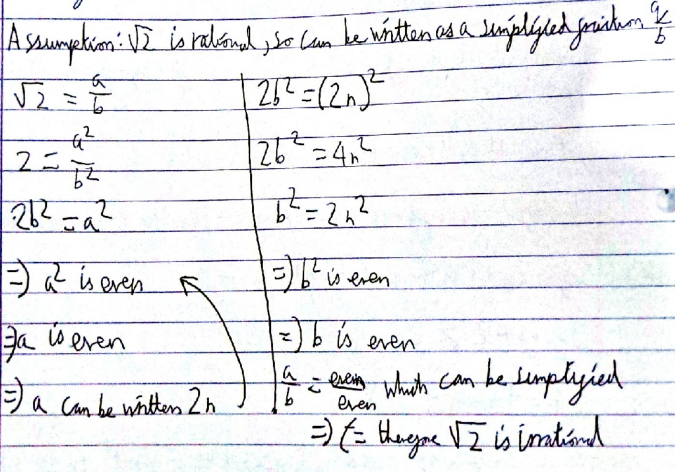 Assumption: √2 is rational, so can be written as a simplified fraction a/b
√2 = a/b
2 = a²/b²
2b² = a²
=) a² is even
=) a is even
=) a can be written 2n
2b² = (2n)²
2b² = 4n²
b² = 2n²
=) b² is even
=) b is even
a/b = even/even which can be simplified
=) (= therefore √2 is irrational